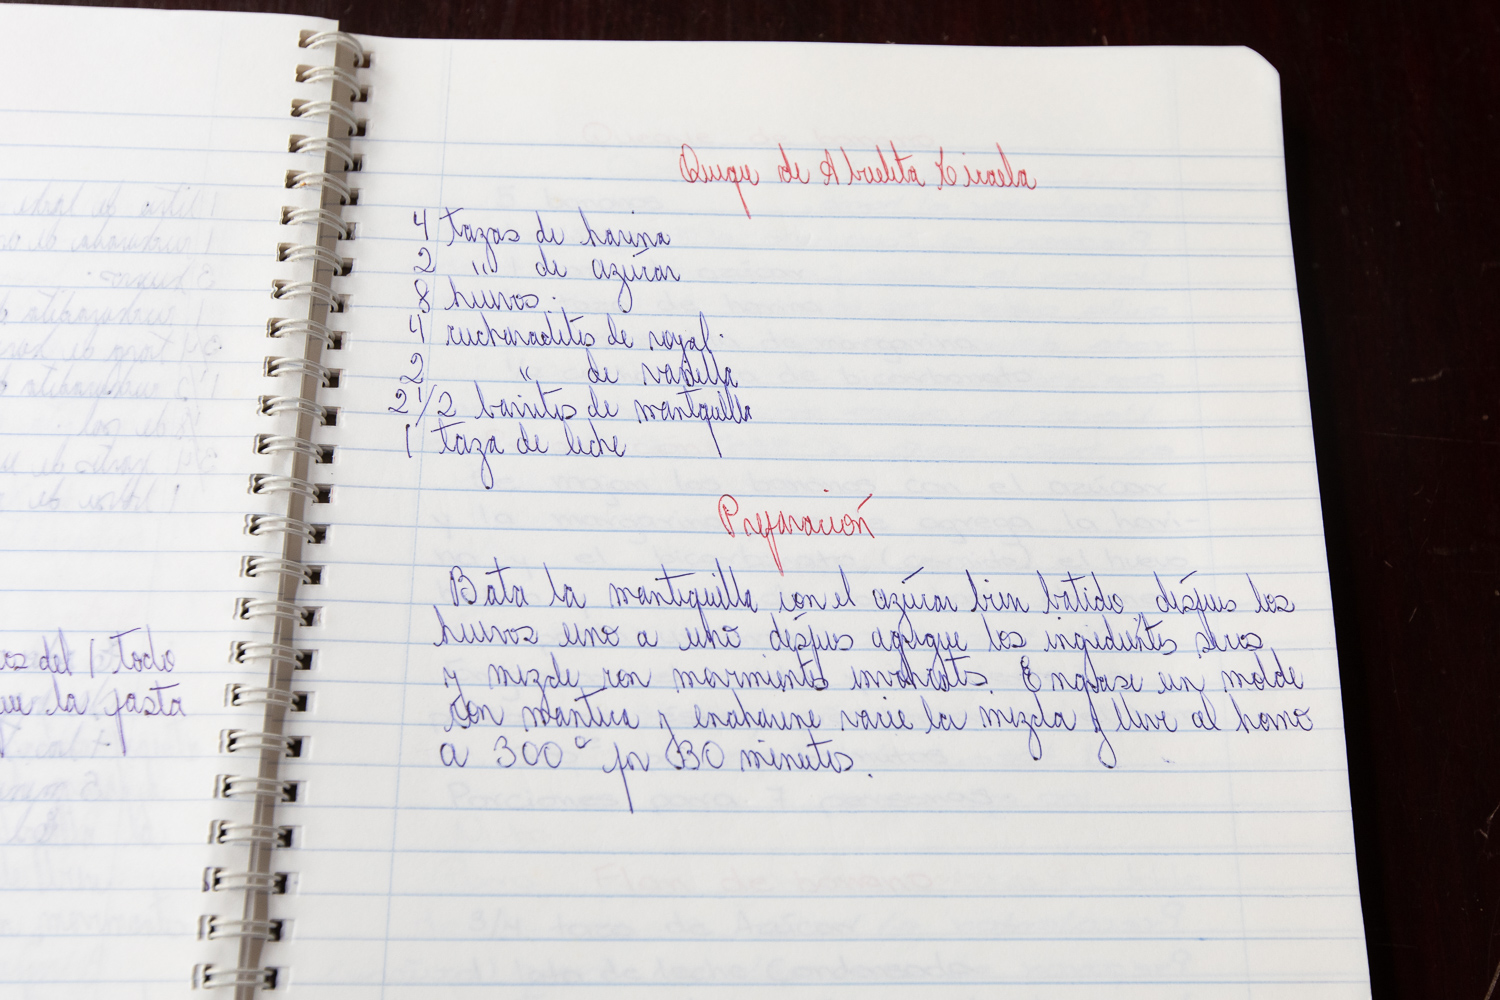 Queque de Abuelita
4 tazas de harina
2 " de azúcar
8 huevos.
4 cucharaditas de royal.
2 " de vainilla
2 1/2 barritas de mantequilla
1 taza de leche
Preparación
Bata la mantequilla con el azúcar bien batido, después los
huevos uno a uno después agregue los ingredientes secos
y mezcle con movimientos envolventes. Engrase un molde
con manteca y enharine vacie la mezcla y lleve al horno
a 300° por 30 minutos.
del todo
la pasta